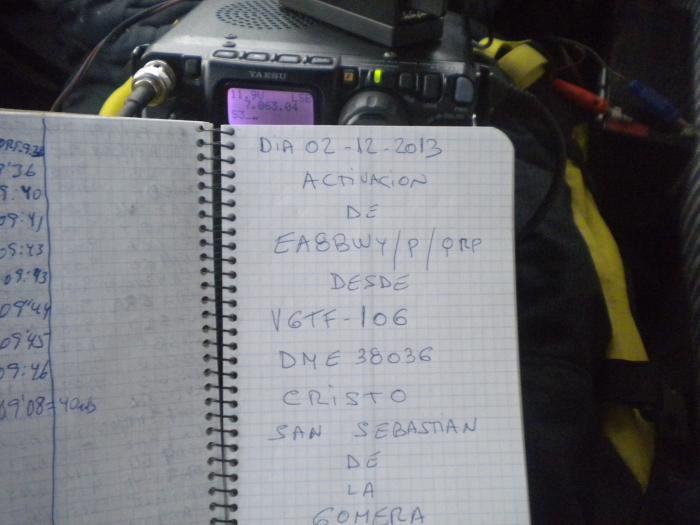 YAESU
11.9V LSB
7.063.04
S3
09:40
09:41
09:43
09:43
09:44
09:45
09:46
09'08=40mb
DIA 02-12-2013
ACTIVACION
DE
EA8BWY/P/QRP
DESDE
VGTF-106
DME 38036
CRISTO
SAN SEBASTIAN
DE
LA
GOMERA